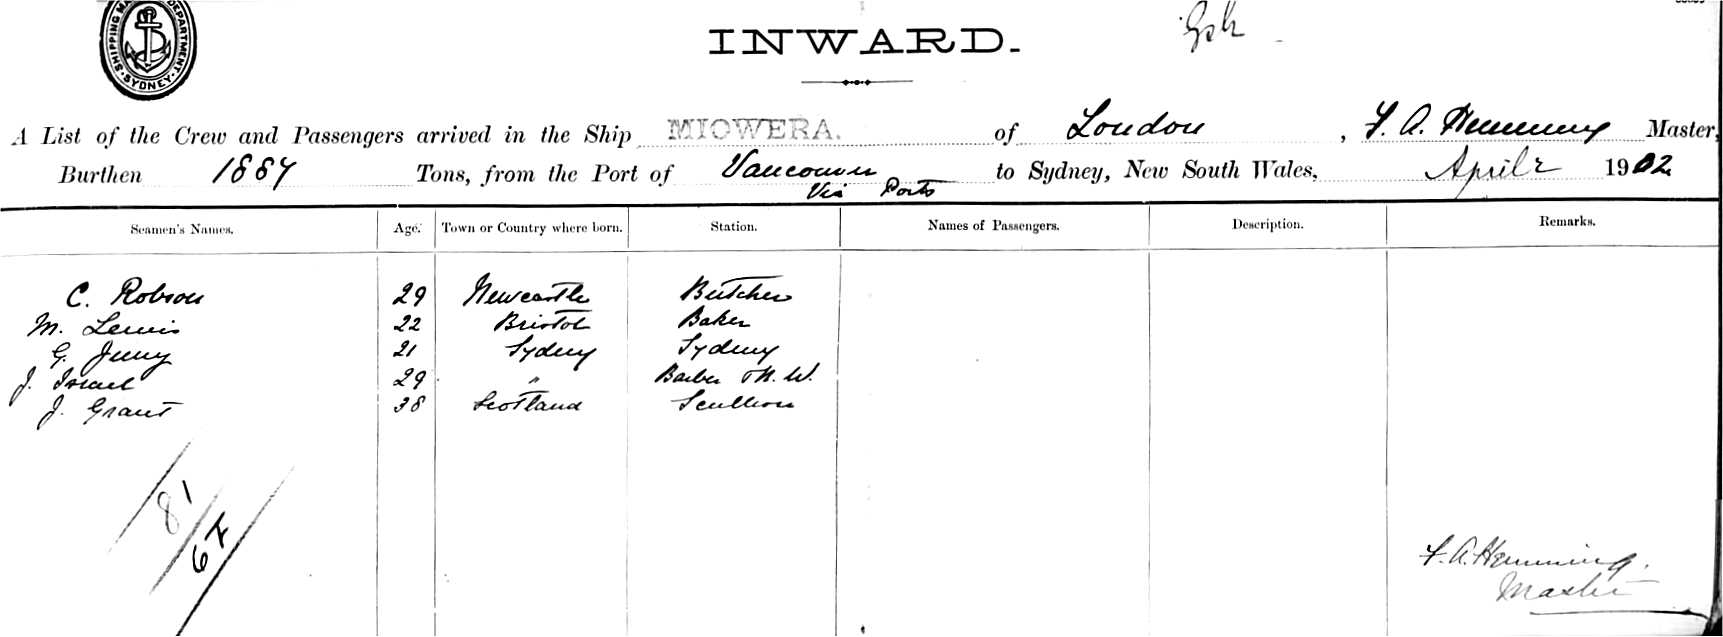 SHIPPING MA DEPARTMENT. SYDNEY
INWARD.
A List of the Crew and Passengers arrived in the Ship MIOWERA. of London, F. A. Hemming Master,
Burthen 1887 Tons, from the Port of Vancouver to Sydney, New South Wales, April 2 1902
Via Ports
Seamen's Names. Age. Town or Country where born. Station. Names of Passengers. Description. Remarks.
C. Robson 29 Newcastle Butcher
M. Lewis 22 Bristol Baker
G. Juny 21 Sydney Sydney
J. Israel 29 " Barber Th. W.
J. Grant 38 Scotland Scullion
81
67
F. A. Hemming.
Master